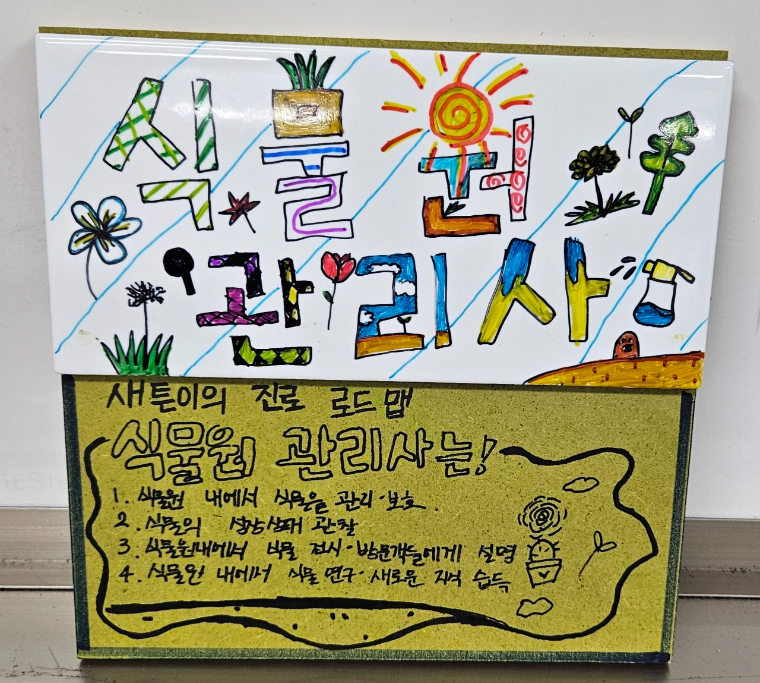 식물원
관리사
새튼이의 진로 로드맵
식물원 관리사는!
1. 식물원 내에서 식물을 관리·보호
2. 식물의 생장상태 관찰
3. 식물원내에서 식물 전시·방문객들에게 설명
4. 식물원 내에서 식물 연구·새로운 지식 습득